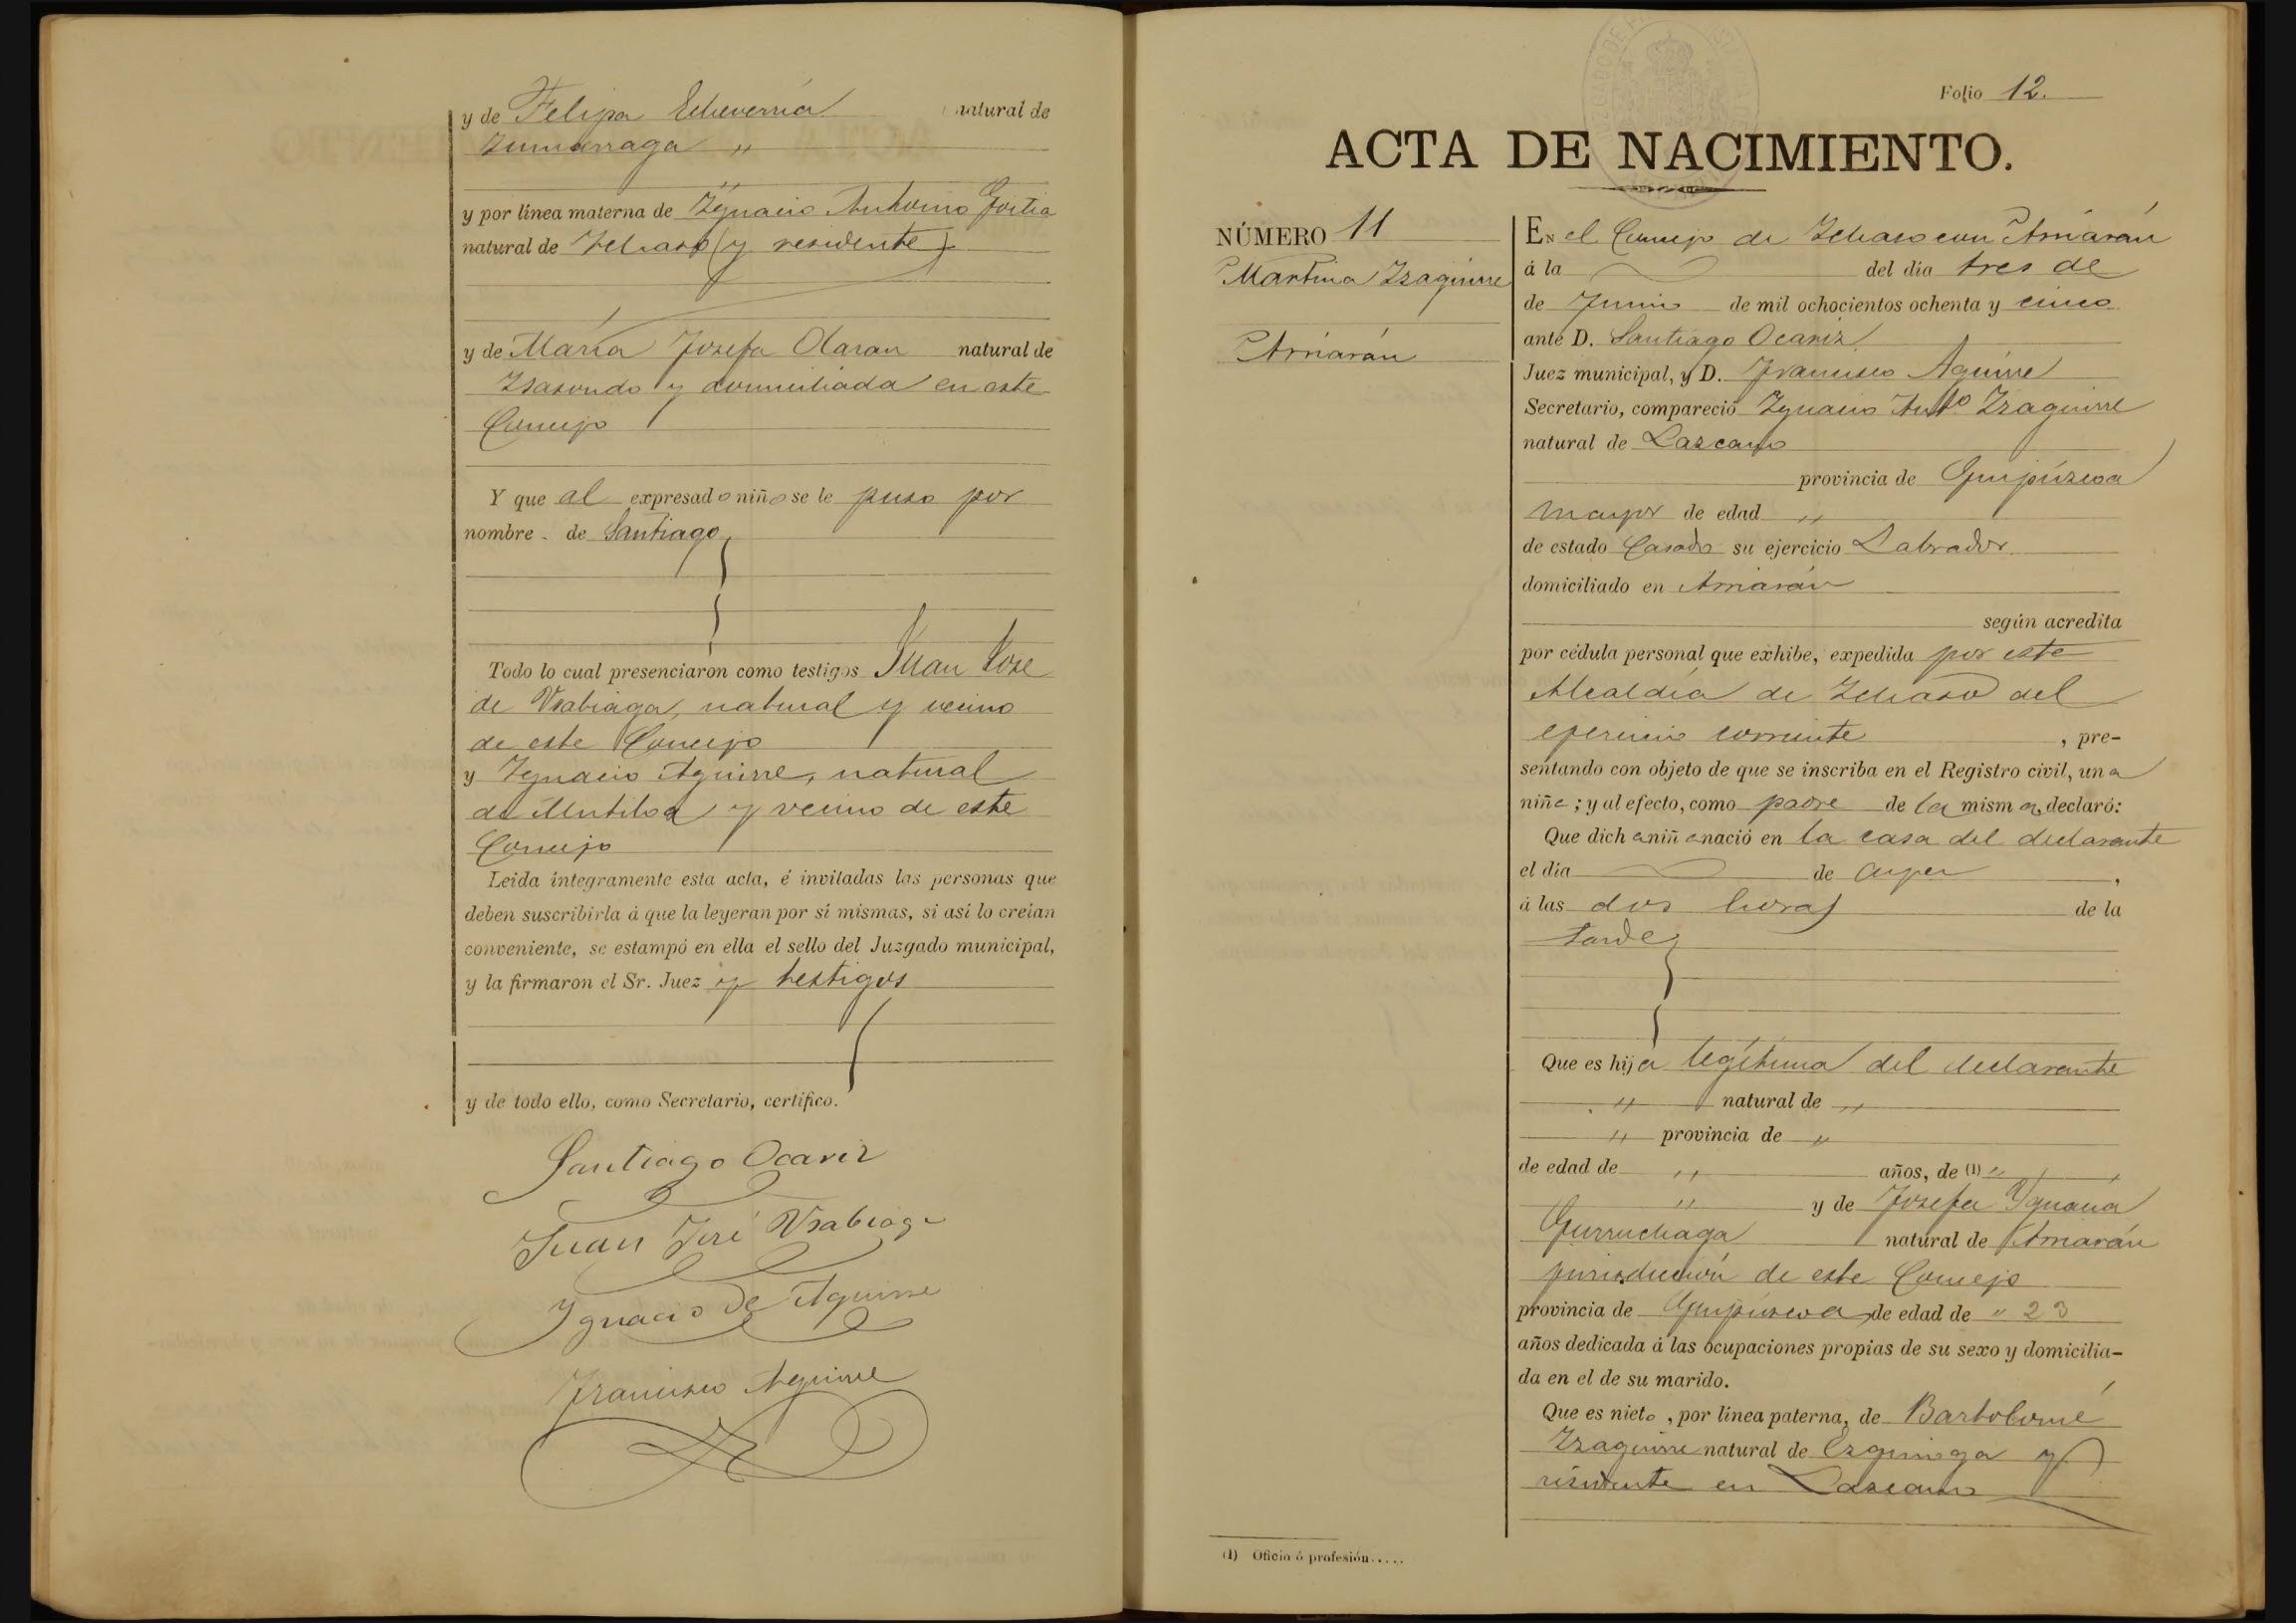 y de Felipa Echeverria natural de
Zumarraga "
y por línea materna de Ygnacio Antonio Goitia
natural de Ichaso (y residente)
y de María Josefa Olaran natural de
Isasondo y domiciliada en este
Concejo
Y que al expresado niño se le puso por
nombre de Santiago
Todo lo cual presenciaron como testigos Juan Jose
de Usabiaga, natural y vecino
de este Concejo
y Ygnacio Aguirre, natural
de Mutiloa y vecino de este
Concejo
Leida íntegramente esta acta, é invitadas las personas que
deben suscribirla á que la leyeran por sí mismas, si así lo creían
conveniente, se estampó en ella el sello del Juzgado municipal,
y la firmaron el Sr. Juez y testigos
y de todo ello, como Secretario, certifico.
Santiago Ocariz
Juan José Usabiaga
Ygnacio de Aguirre
Francisco Aguirre
Folio 12.
ACTA DE NACIMIENTO.
NÚMERO 11
Martina Izaguirre
Arriarán
En el Concejo de Ichaso con Arriarán
á la del día tres de
de Junio de mil ochocientos ochenta y cinco
ante D. Santiago Ocariz
Juez municipal, y D. Francisco Aguirre
Secretario, compareció Ygnacio Antº Izaguirre
natural de Lazcano
provincia de Guipúzcoa
mayor de edad "
de estado Casado su ejercicio Labrador
domiciliado en Arriarán
según acredita
por cédula personal que exhibe, expedida por esta
Alcaldía de Ichaso del
ejercicio corriente , pre-
sentando con objeto de que se inscriba en el Registro civil, una
niña; y al efecto, como padre de la misma, declaró:
Que dicha niña nació en la casa del declarante
el día de ayer ,
á las dos horas de la
tarde
Que es hija legítima del declarante
" natural de "
" provincia de "
de edad de " años, de (1) "
" y de Josefa Ygnacia
Gurruchaga natural de Arriarán
jurisdicción de este Concejo
provincia de Guipúzcoa, de edad de " 23
años dedicada á las ocupaciones propias de su sexo y domicilia-
da en el de su marido.
Que es nieto, por línea paterna, de Bartolomé
Izaguirre natural de Ezquioga y
residente en Lazcano
(1) Oficio ó profesión.....